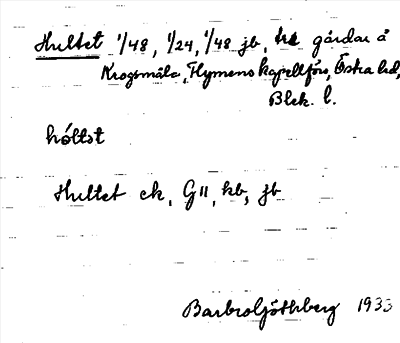 Hultet 1/48, 1/24, 1/48 jb, tre gårdar å
Krogsmåla, Flymens kapellförs, Östra hd,
Blek. l.
hóltət
Hultet ek, G II, kb, jb
Barbro Ljóthberg 1933